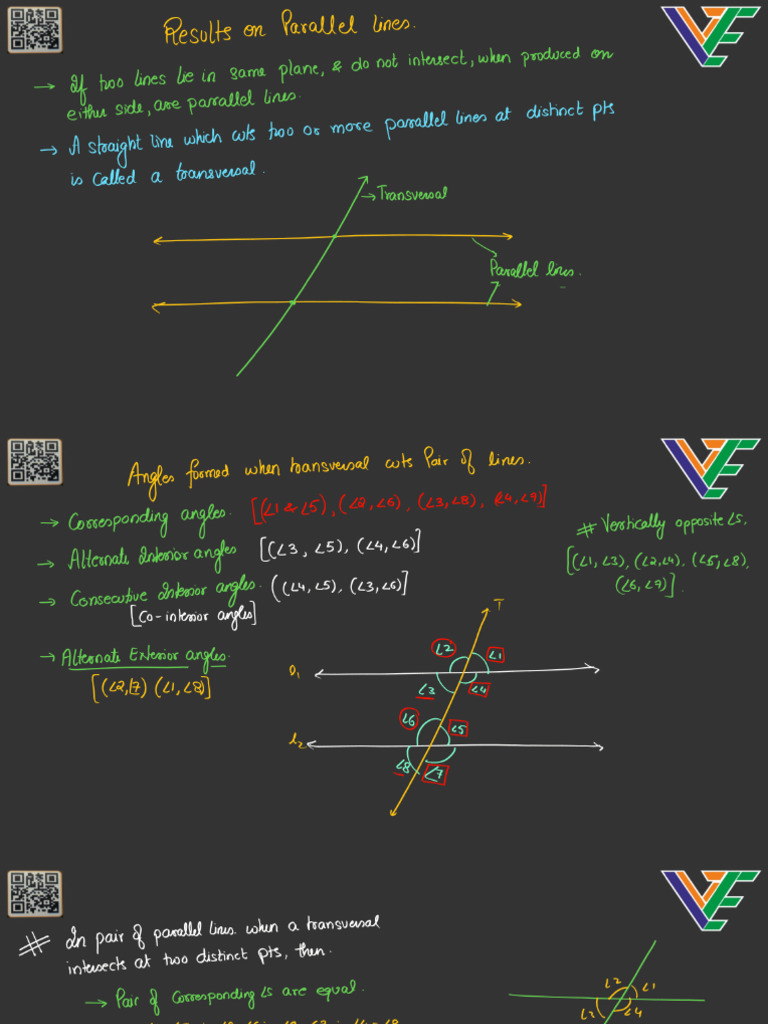 Results on Parallel lines.
→ If two lines lie in same plane, & do not intersect, when produced on
either side, are parallel lines.
→ A straight line which cuts two or more parallel lines at distinct pts
is called a transversal.
→ Transversal
Parallel lines.
Angles formed when transversal cuts Pair of lines.
→ Corresponding angles. [(∠1 & ∠5), (∠2, ∠6), (∠3, ∠8), (∠4, ∠9)]
→ Alternate Interior angles [(∠3, ∠5), (∠4, ∠6)]
→ Consecutive Interior angles. ((∠4, ∠5), (∠3, ∠6)]
[Co-interior angles]
# Vertically opposite ∠s.
[(∠1, ∠3), (∠2, ∠4), (∠5, ∠8),
(∠6, ∠9)].
→ Alternate Exterior angles.
[(∠2, 7) (∠1, ∠8)]
T
∠2 ∠1
l1
∠3 ∠4
∠6 ∠5
l2
∠8 ∠7
# In pair of parallel lines. when a transversal
intersects at two distinct pts, then.
→ Pair of Corresponding ∠s are equal.
∠2 ∠1
∠3 ∠4